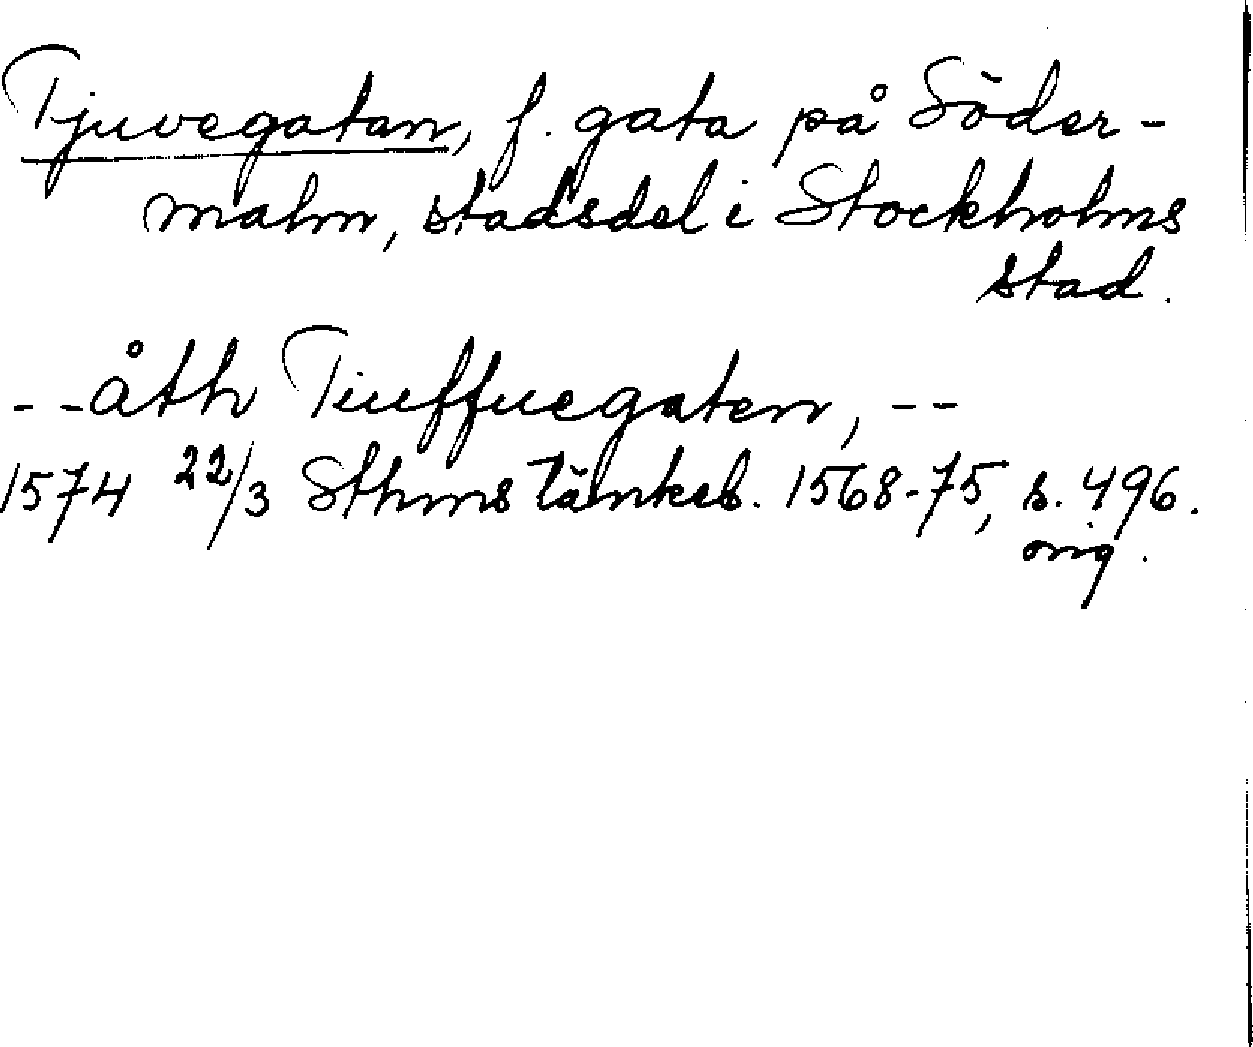 Tjuvegatan, f. gata på Söder-
malm, stadsdel i Stockholms
stad.
--åth Tiuffuegaten, --
1574 22/3 Sthms tänkeb. 1568-75, s. 496.
orig.